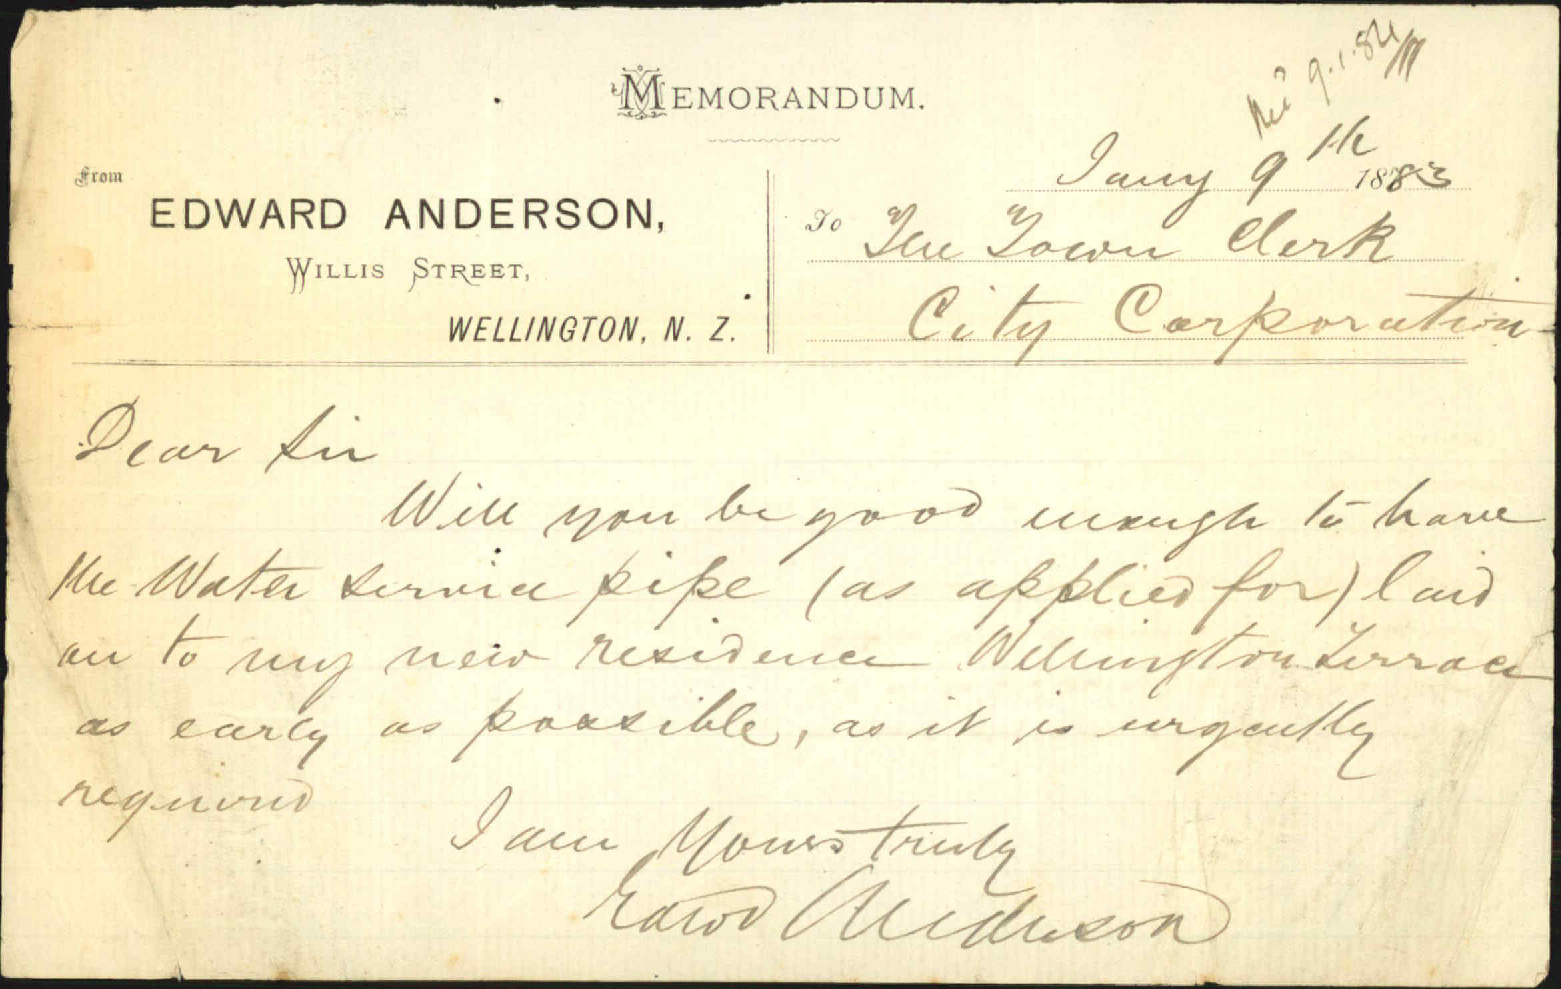 Recd 9.1.84
MEMORANDUM.
Jany 9th 1883
From
EDWARD ANDERSON,
WILLIS STREET,
WELLINGTON, N. Z.
To The Town Clerk
City Corporation
Dear Sir
Will you be good enough to have
the Water Service pipe (as applied for) laid
on to my new residence Wellington Terrace
as early as possible, as it is urgently
required
I am Yours truly
Edwd Anderson